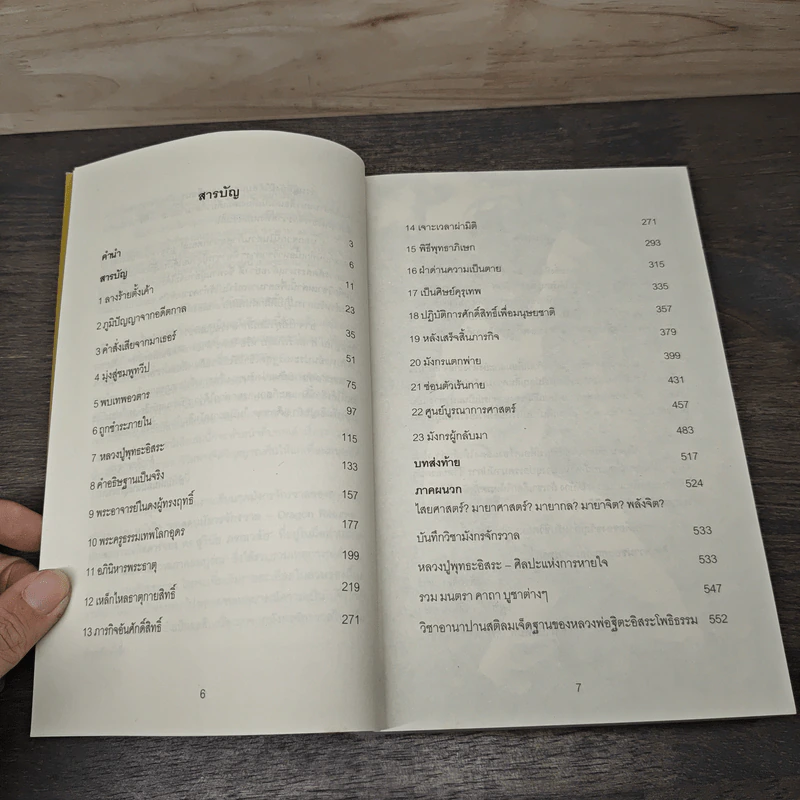 สารบัญ
คำนำ 3
สารบัญ 6
1 ลางร้ายตั้งเค้า 11
2 ภูมิปัญญาจากอดีตกาล 23
3 คำสั่งเสียจากมาเธอร์ 35
4 มุ่งสู่ชมพูทวีป 51
5 พบเทพอวตาร 75
6 ถูกชำระภายใน 97
7 หลวงปู่พุทธะอิสระ 115
8 คำอธิษฐานเป็นจริง 133
9 พระอาจารย์ในดงผู้ทรงฤทธิ์ 157
10 พระครูธรรมเทพโลกอุดร 177
11 อภินิหารพระธาตุ 199
12 เหล็กไหลธาตุกายสิทธิ์ 219
13 ภารกิจอันศักดิ์สิทธิ์ 271
6
14 เจาะเวลาผ่ามิติ 271
15 พิธีพุทธาภิเษก 293
16 ฝ่าด่านความเป็นตาย 315
17 เป็นศิษย์คุรุเทพ 335
18 ปฏิบัติการศักดิ์สิทธิ์เพื่อมนุษยชาติ 357
19 หลังเสร็จสิ้นภารกิจ 379
20 มังกรแตกพ่าย 399
21 ซ่อนตัวเร้นกาย 431
22 ศูนย์บูรณาการศาสตร์ 457
23 มังกรผู้กลับมา 483
บทส่งท้าย 517
ภาคผนวก 524
ไสยศาสตร์? มายาศาสตร์? มายากล? มายาจิต? พลังจิต?
บันทึกวิชามังกรจักรวาล 533
หลวงปู่พุทธะอิสระ – ศิลปะแห่งการหายใจ 533
รวม มนตรา คาถา บูชาต่างๆ 547
วิชาอานาปานสติลมเจ็ดฐานของหลวงพ่อฐิตะอิสระโพธิธรรม 552
7